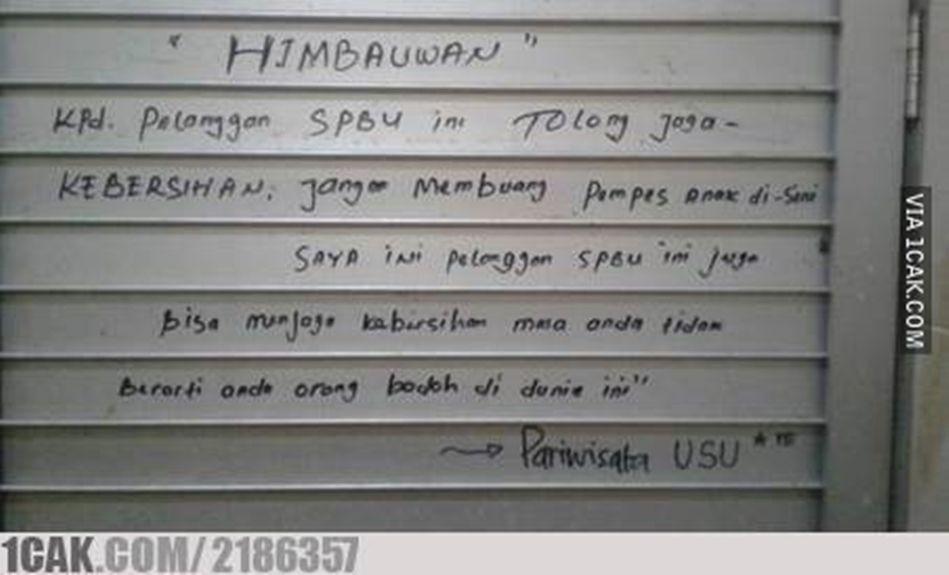 " HIMBAUWAN "
Kpd. Pelanggan SPBU ini Tolong jaga -
KEBERSIHAN. jangan Membuang Pempes anak di-sini
SAYA INI pelanggan SPBU ini juga
bisa menjaga kebersihan masa anda tidak
berarti anda orang bodoh di dunia ini"
→ Pariwisata USU
VIA 1CAK.COM
1CAK.COM/2186357